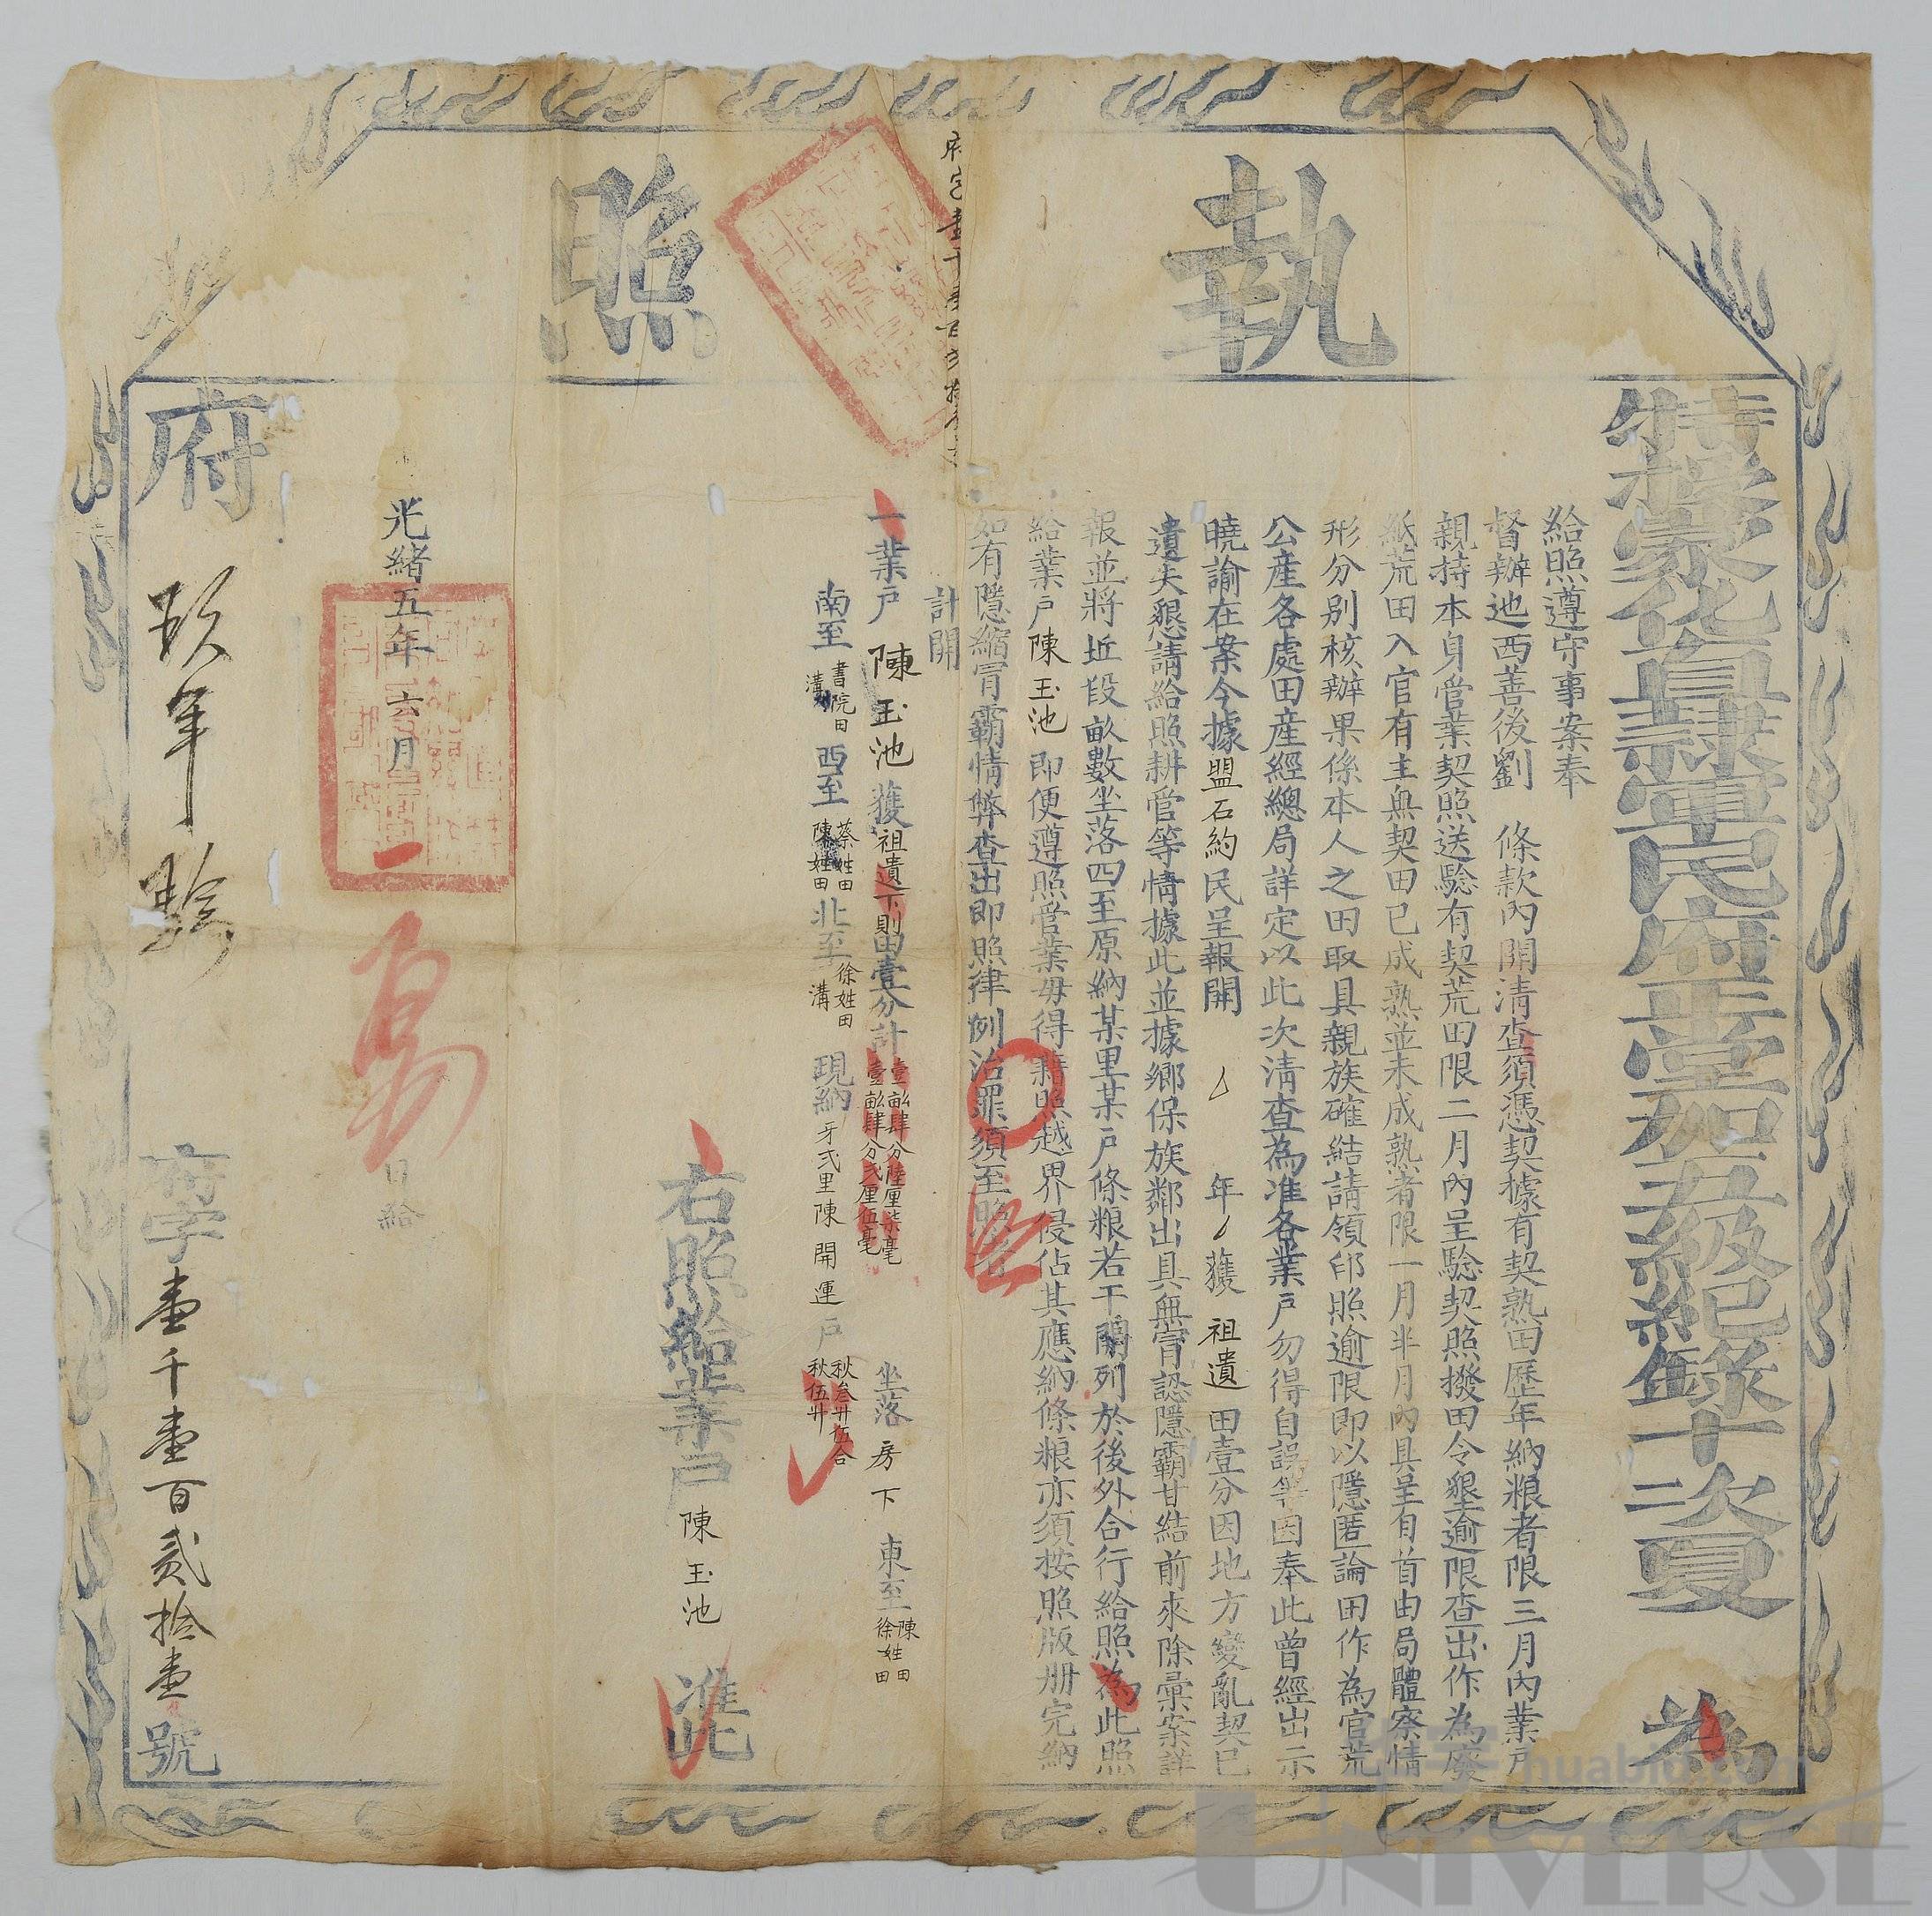 執照
特授蒙化直隸軍民府正堂加五級紀錄十二次夏 為
給照遵守事案奉
督辦迤西善後劉 條款內開清查須憑契據有契熟田歷年納粮者限三月內業戶
親持本身管業契照送驗有契荒田限二月內呈驗契照撥田令墾逾限查出作為廢
紙荒田入官有主無契田已成熟並未成熟者限一月半月內具呈自首由局體察情
形分別核辦果係本人之田取具親族確結請領印照逾限即以隱匿論田作為官荒
公產各處田產經總局詳定以此次清查為准各業戶勿得自誤等因奉此曾經出示
曉諭在案今據盟石約民呈報開 年 獲 祖遺 田壹分因地方變亂契已
遺失懇請給照耕管等情據此並據鄉保族鄰出具無冐認隱霸甘結前來除彙案詳
報並將坵段畝數坐落四至原納某里某戶條粮若干開列於後外合行給照為此照
給業戶陳玉池 即便遵照管業毋得藉照越界侵佔其應納條粮亦須按照版册完納
如有隱縮冐霸情弊查出即照律例治罪須至照者
計開
一業戶 陳玉池 獲祖遺下則田壹分計 壹畝肆分陸厘柒毫 壹畝肆分弍厘伍毫 坐落 房下 東至 陳姓田 徐姓田
南至 書院田 溝 西至 蔡姓田 陳姓田 北至 徐姓田 溝 現納 牙弍里陳開運戶 秋叁升伍合 秋伍升
右照給業戶 陳玉池 准此
光緒五年六月 日給
府 玖年驗 府字壹千壹百貳拾壹號
UNIVERSE